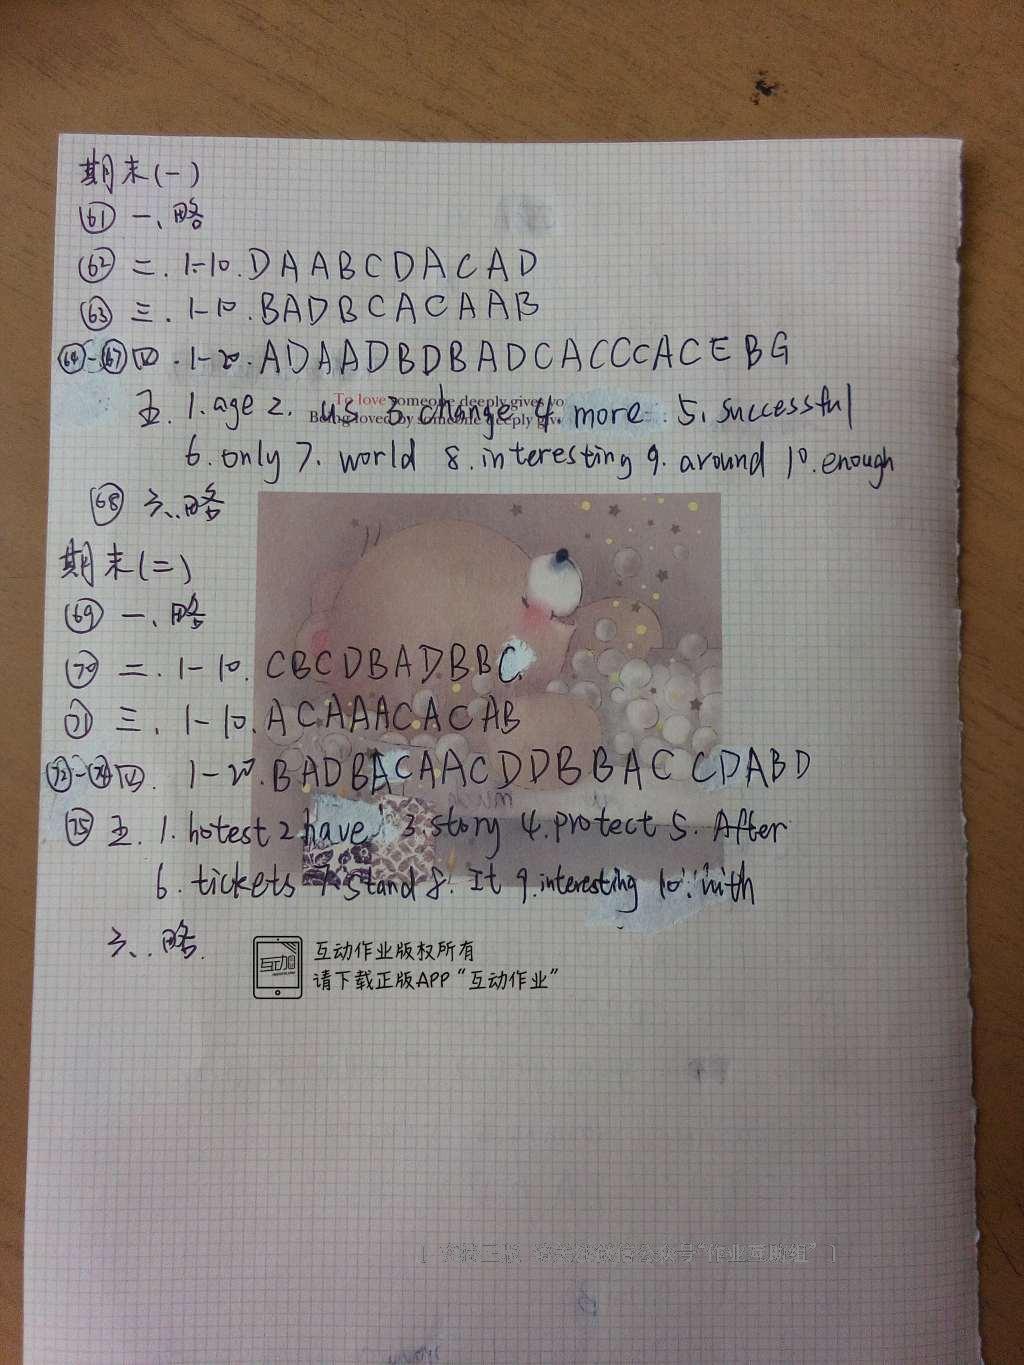 期末(一)
61 一、略
62 二.1-10.DAABCDACAD
63 三.1-10.BADBCACAAB
64-67 四.1-20.ADAADBDBADCACCCACEBG
To love someone deeply gives yo
Being loved by someone deeply giv
五.1.age 2.us 3.change 4.more 5.successful
6.only 7.world 8.interesting 9.around 10.enough
68 六、略
期末(二)
69 一、略
70 二.1-10.CBCDBADBBC
71 三.1-10.ACAAACACAB
72-74 四.1-20.BADBACAACDDBBACCDABD
75 五.1.hotest 2.have 3.story 4.protect 5.After
6.tickets 7.stand 8.It 9.interesting 10.with
六、略.
互动作业版权所有
请下载正版APP“互动作业”
“作业互助组”]